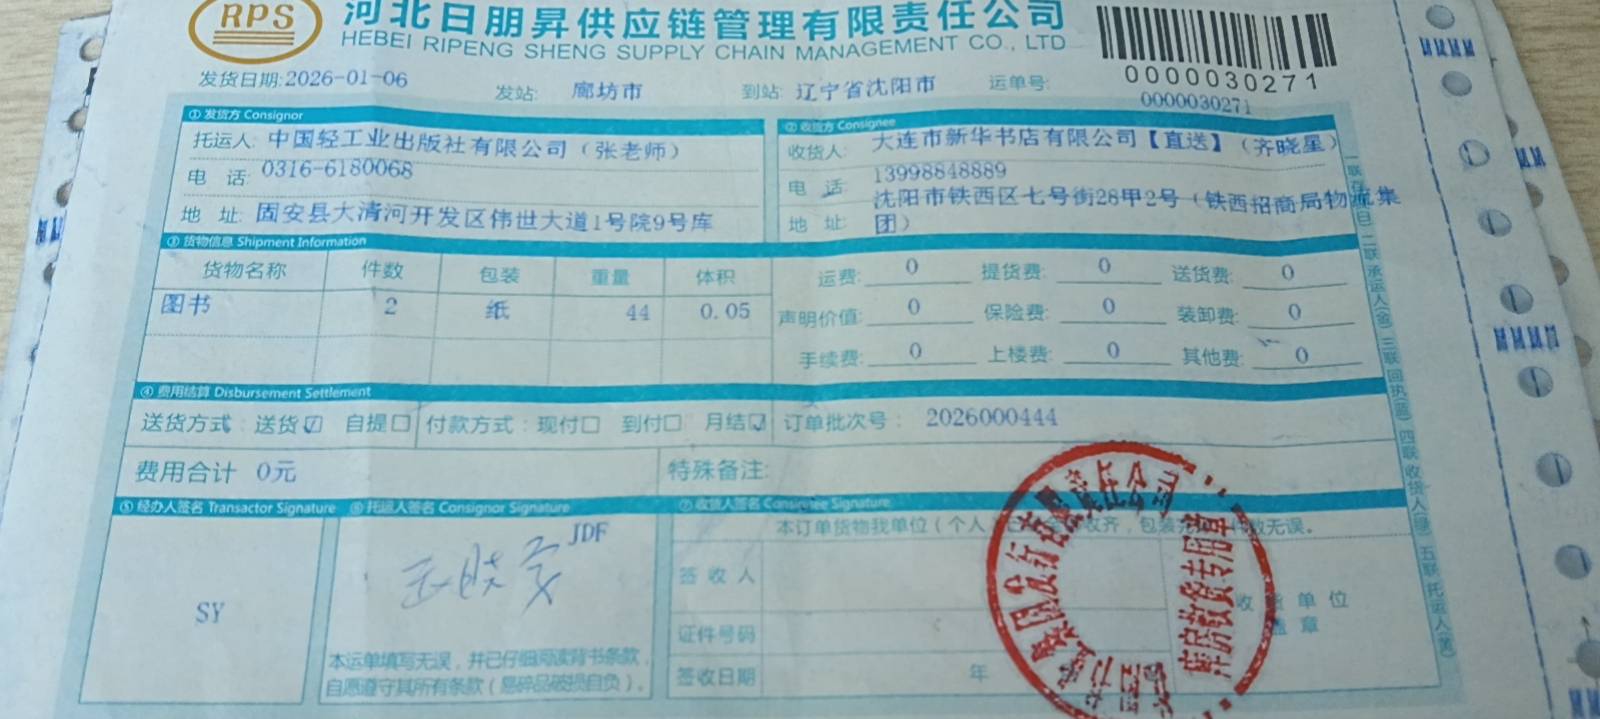 RPS
河北日朋昇供应链管理有限责任公司
HEBEI RIPENG SHENG SUPPLY CHAIN MANAGEMENT CO., LTD
0000030271
发货日期:2026-01-06 发站: 廊坊市 到站: 辽宁省沈阳市 运单号: 0000030271
① 发货方 Consignor
托运人: 中国轻工业出版社有限公司（张老师）
电 话: 0316-6180068
地 址: 固安县大清河开发区伟世大道1号院9号库
② 收货方 Consignee
收货人: 大连市新华书店有限公司【直送】（齐晓星）
电 话: 13998848889
地 址: 沈阳市铁西区七号街28甲2号（铁西招商局物流集团）
③ 货物信息 Shipment Information
货物名称 件数 包装 重量 体积
图书 2 纸 44 0.05
运费: 0 提货费: 0 送货费: 0
声明价值: 0 保险费: 0 装卸费: 0
手续费: 0 上楼费: 0 其他费: 0
④ 费用结算 Disbursement Settlement
送货方式: 送货☑ 自提☐ 付款方式: 现付☐ 到付☐ 月结☑ 订单批次号: 2026000444
费用合计 0元 特殊备注:
⑤ 经办人签名 Transactor Signature
SY
⑥ 托运人签名 Consignor Signature
JDF
本运单填写无误，并已仔细阅读背书条款，
自愿遵守其所有条款（易碎品破损自负）。
⑦ 收货人签名 Consignee Signature
本订单货物我单位（个人 收齐，包装 无误。
签 收 人
证件号码
签收日期 年
收 货 单 位
盖 章
库房收货专用章
二联 承运人 三联 回执 四联 收货人 五联 托运人